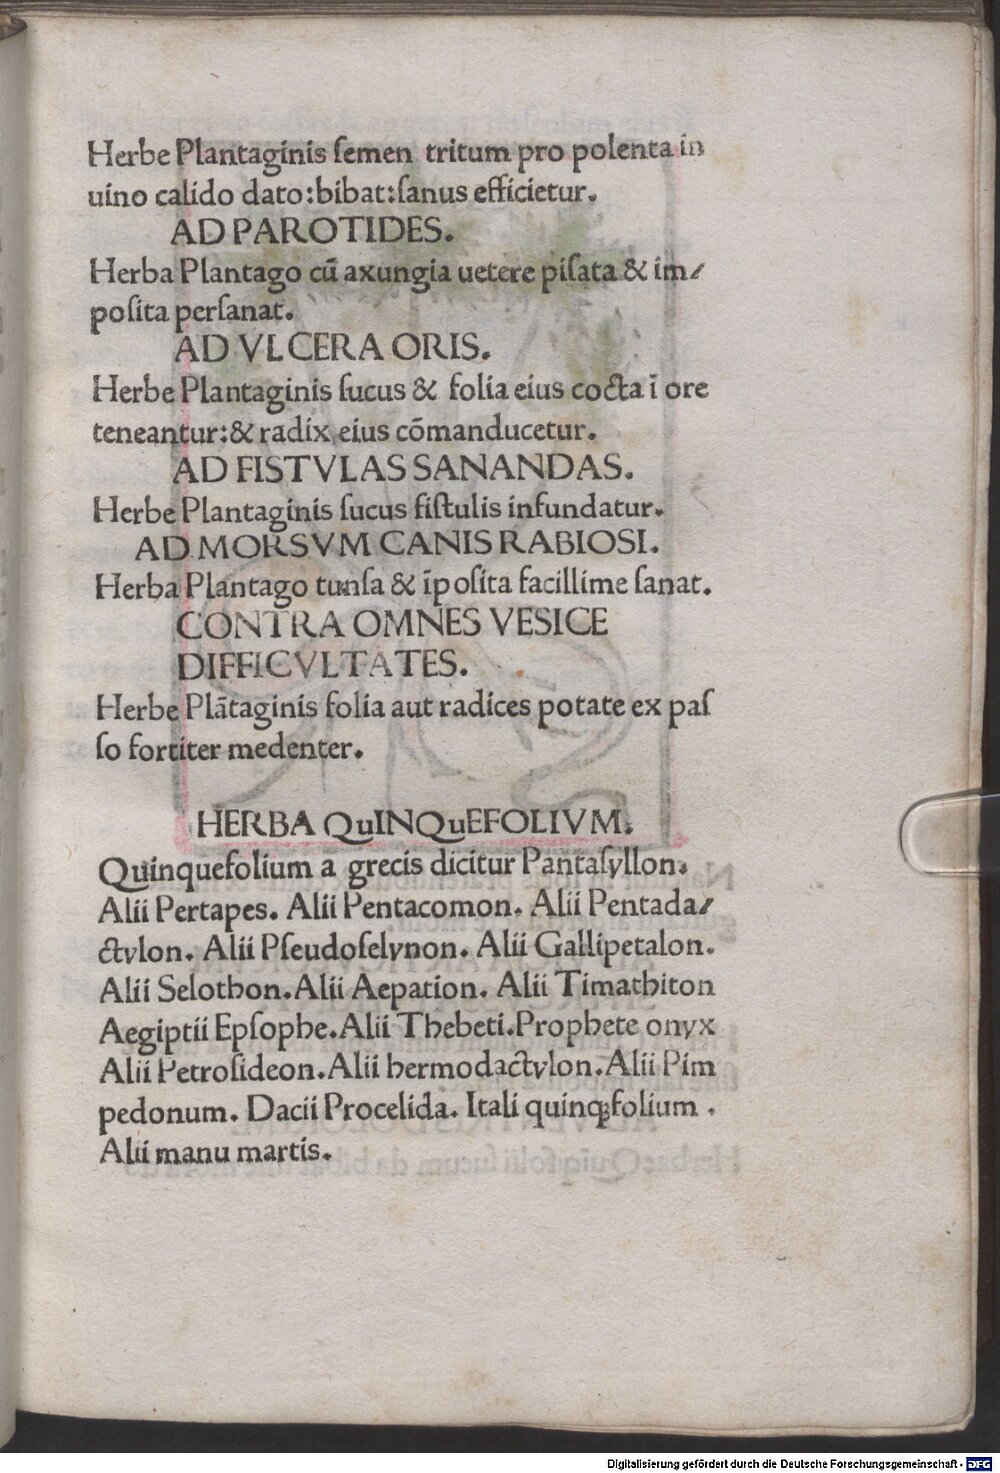 Herbe Plantaginis ſemen tritum pro polenta in
uino calido dato:bibat:ſanus efficietur.
AD PAROTIDES.
Herba Plantago cū axungia uetere piſata & im/
poſita perſanat.
AD VLCERA ORIS.
Herbe Plantaginis ſucus & folia eius cocta ī ore
teneantur:& radix eius cōmanducetur.
AD FISTVLAS SANANDAS.
Herbe Plantaginis ſucus fiſtulis infundatur.
AD MORSVM CANIS RABIOSI.
Herba Plantago tunſa & īpoſita facillime ſanat.
CONTRA OMNES VESICE
DIFFICVLTATES.
Herbe Plātaginis folia aut radices potate ex paſ
ſo fortiter medenter.
HERBA QuINQuEFOLIVM.
Quinquefolium a grecis dicitur Pantaſyllon.
Alii Pertapes. Alii Pentacomon. Alii Pentada/
ctylon. Alii Pſeudoſelynon. Alii Gallipetalon.
Alii Selothon.Alii Aepation. Alii Timathiton
Aegiptii Epſophe.Alii Thebeti.Prophete onyx
Alii Petroſideon.Alii hermodactylon.Alii Pim
pedonum. Dacii Procelida. Itali quinqꝫfolium .
Alii manu martis.
Digitalisierung gefördert durch die Deutsche Forschungsgemeinschaft - DFG